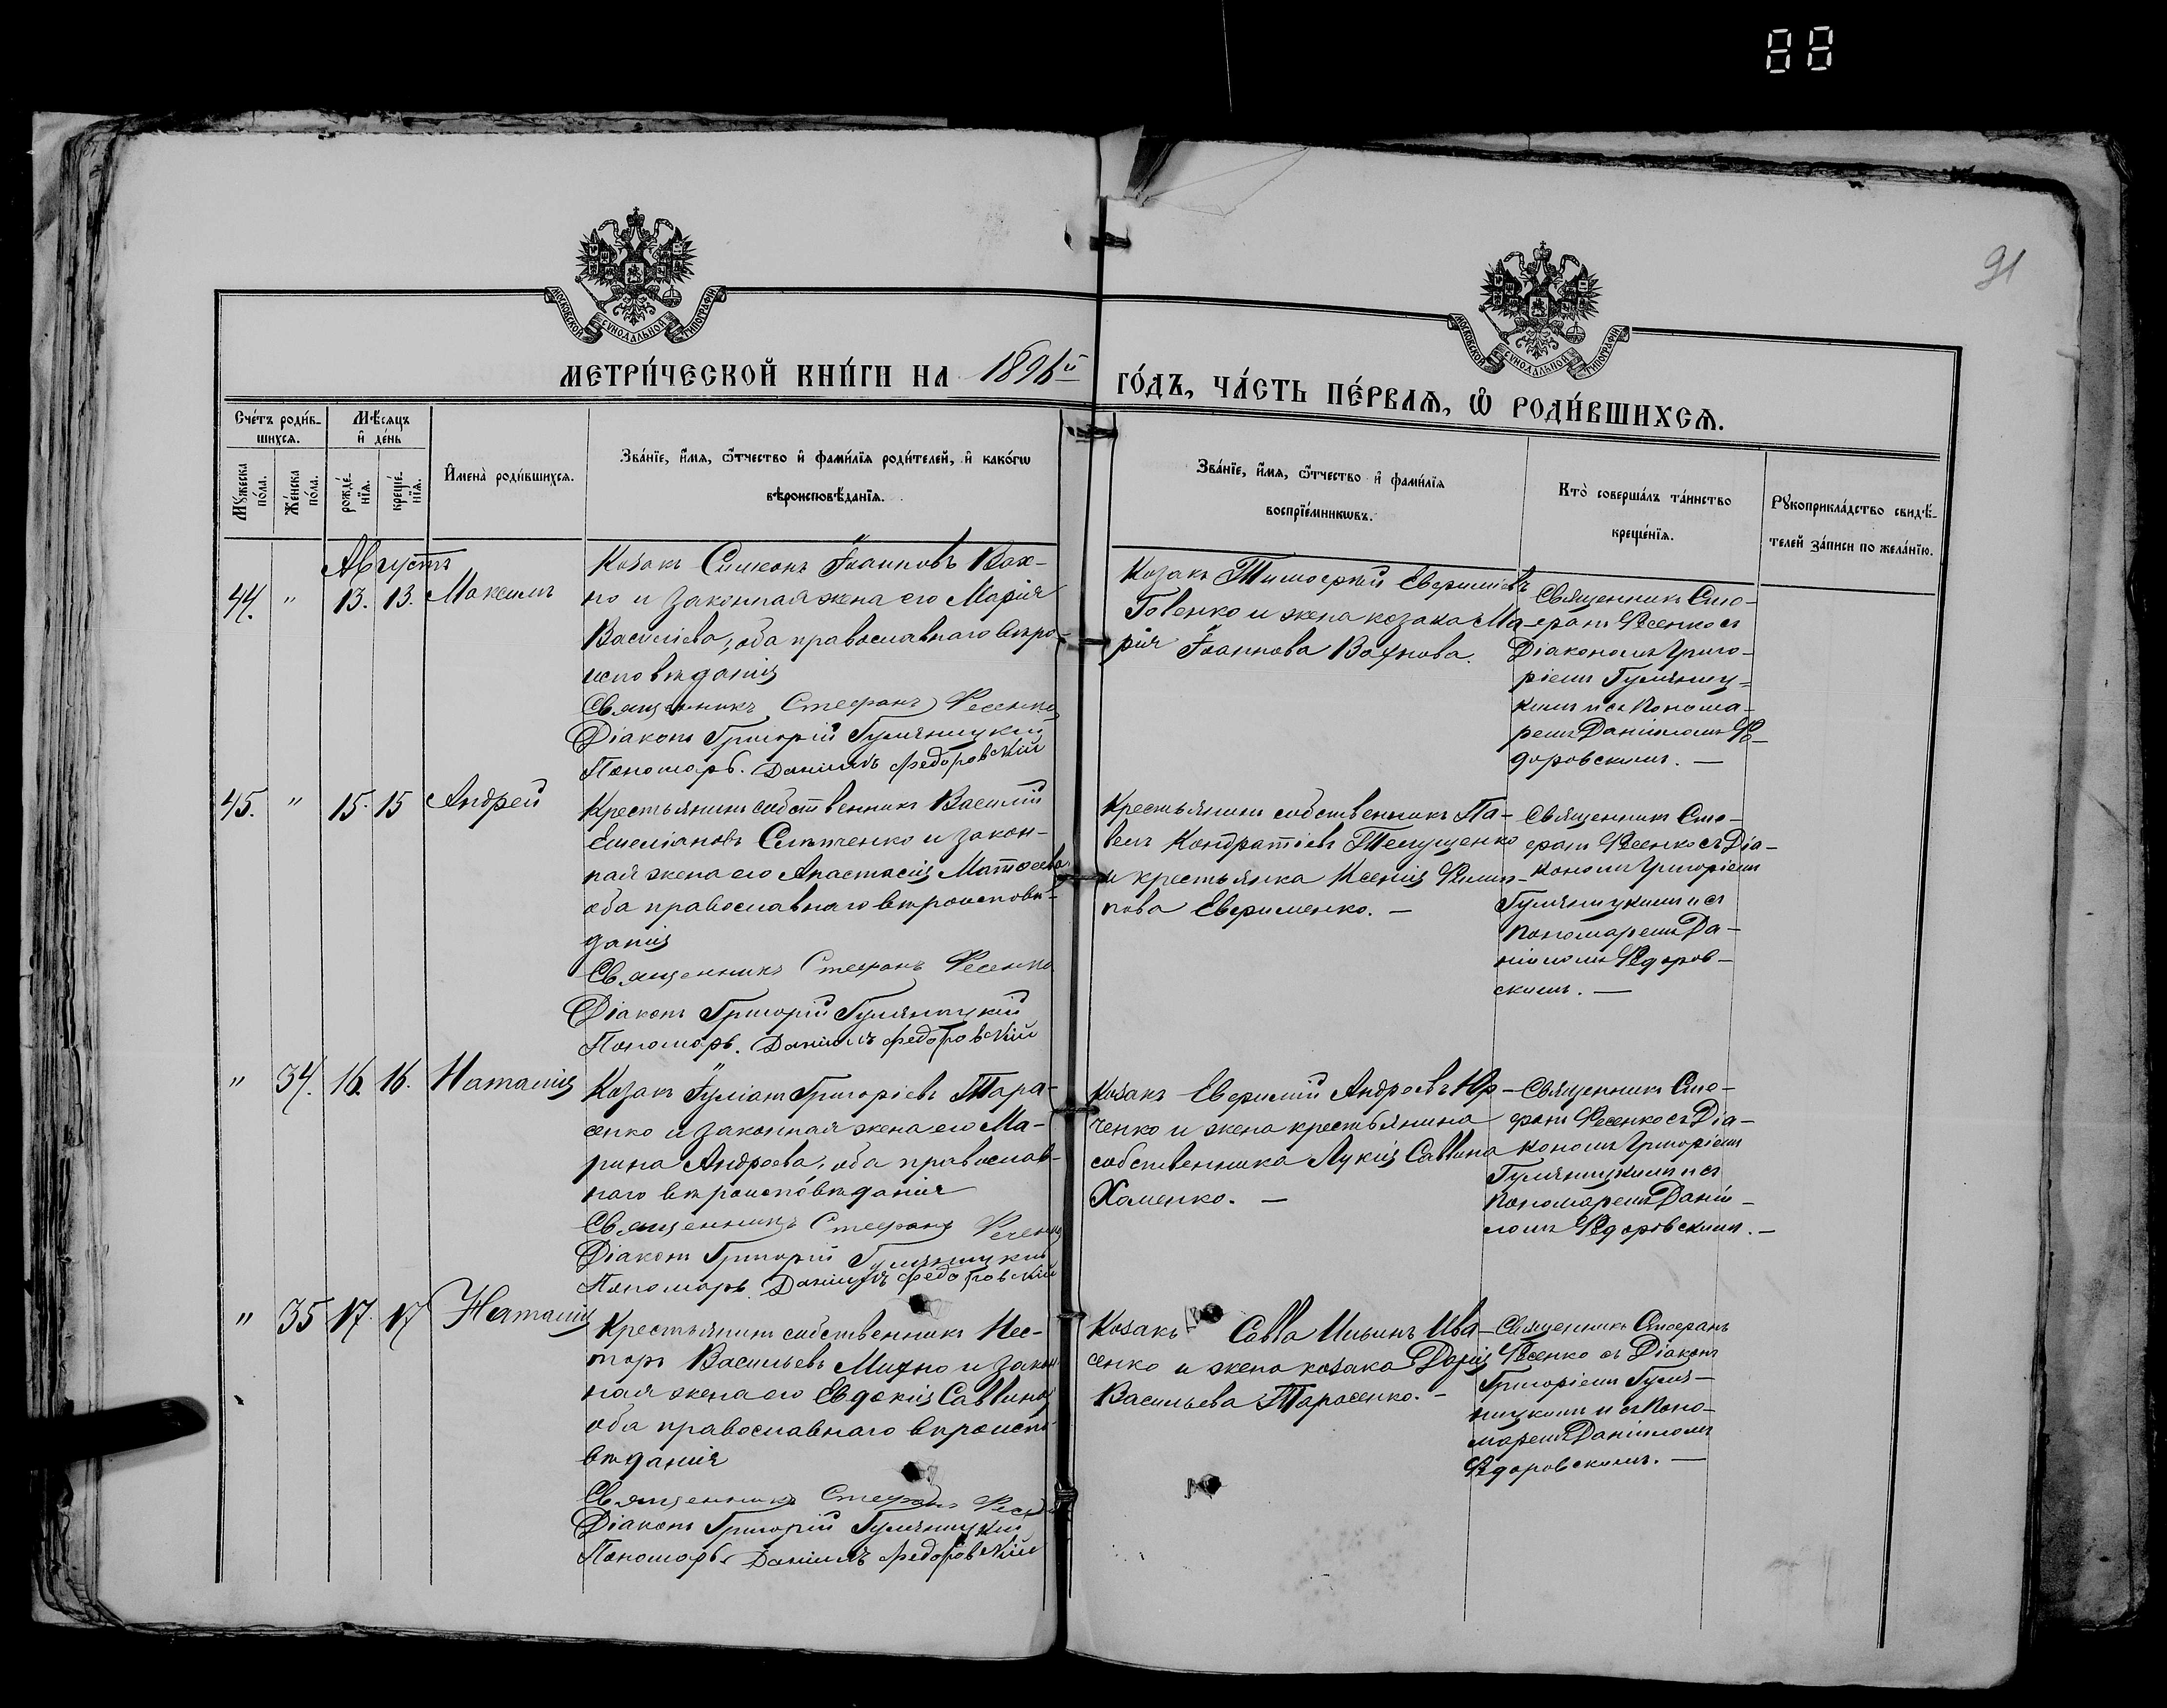 88
91
МОСКОВСКОЙ СУНОДАЛЬНОЙ ТИПОГРАФІИ
МОСКОВСКОЙ СУНОДАЛЬНОЙ ТИПОГРАФІИ
МЕТРИ́ЧЕСКОЙ КНИ́ГИ НА 1896й ГО́ДЪ, ЧА́СТЬ ПЕ́РВАѦ, Ѡ҆ РОДИ́ВШИХСѦ.
Сче́тъ роди́в-
шихсѧ.
Мꙋ́жеска по́ла.
Же́нска по́ла.
Мѣ́сѧцъ
и҆ де́нь
рожде́-
нїѧ.
креще́-
нїѧ.
И҆мена̀ роди́вшихсѧ.
Зва́нїе, и҆́мѧ, ѻ҆́тчество и҆ фамѝлїѧ роди́телей, и҆ како́гѡ
вѣроисповѣ́данїѧ.
Зва́нїе, и҆́мѧ, ѻ҆́тчество и҆ фамѝлїѧ
воспрїе́мникѡвъ.
Кто̀ соверша́лъ та́инство
креще́нїѧ.
Рꙋкоприкла́дство свидѣ́-
телей за́писи по жела́нїю.
Августъ
44. " 13. 13. Максимъ
Козакъ Симеонъ Іоанновъ Вах-
но и законная жена его Марія
Василіева, оба православнаго вѣро-
исповѣданія
Священникъ Стефанъ Фесенко
Діаконъ Григорій Гуляницкій
Пономарь Даніилъ Федоровскій
Козакъ Тимофей Евфиміевъ
Говенко и жена козака Ма-
рія Іоаннова Вахнова.
Священникъ Сте-
фанъ Фесенко съ
Діакономъ Григо-
ріемъ Гуляниц-
кимъ и съ Понома-
ремъ Даніиломъ Фе-
доровскимъ. —
45. " 15. 15 Андрей
Крестьянинъ собственникъ Василій
Емеліановъ Слѣпченко и закон-
ная жена его Анастасія Матфеева
оба православнаго вѣроисповѣ-
данія
Священникъ Стефанъ Фесенко
Діаконъ Григорій Гуляницкій
Пономарь. Даніилъ Федоровскій
Крестьянинъ собственникъ Па-
велъ Кондратіевъ
и крестьянка Ксенія Филип-
пова Евфименко. —
Священникъ Сте-
фанъ Фесенко съ Діа-
кономъ Григоріемъ
Гуляницкимъ и съ
Пономаремъ Да-
ніиломъ Федоров-
скимъ. —
" 34. 16. 16. Наталія
Козакъ Іуліанъ Григоріевъ Тара-
сенко и законная жена его Ма-
рина Андреева, оба православ-
наго вѣроисповѣданія
Священникъ Стефанъ Фесенко
Діаконъ Григорій Гуляницкій
Пономарь Даніилъ Федоровскій
Козакъ Евфимій Андреевъ Юр-
ченко и жена крестьянина
собственника Лукія Саввина
Хоменко. —
Священникъ Сте-
фанъ Фесенко съ Діа-
кономъ Григоріемъ
Гуляницкимъ и съ
Пономаремъ Даніи-
ломъ Федоровскимъ. —
" 35 17. 17 Наталія
Крестьянинъ собственникъ Нес-
торъ Васильевъ Михно и закон-
ная жена его Евдокія Саввина
оба православнаго вѣроиспо-
вѣданія
Священникъ Стефанъ Фесенко
Діаконъ Григорій Гуляницкій
Пономарь Даніилъ Федоровскій
Козакъ Савва Ильинъ Ива-
сенко и жена козака Дарія
Васильева Тарасенко. —
Священникъ Стефанъ
Фесенко съ Діакон
Григоріемъ Гуля-
ницкимъ и съ Поно-
маремъ Даніиломъ
Федоровскимъ. —